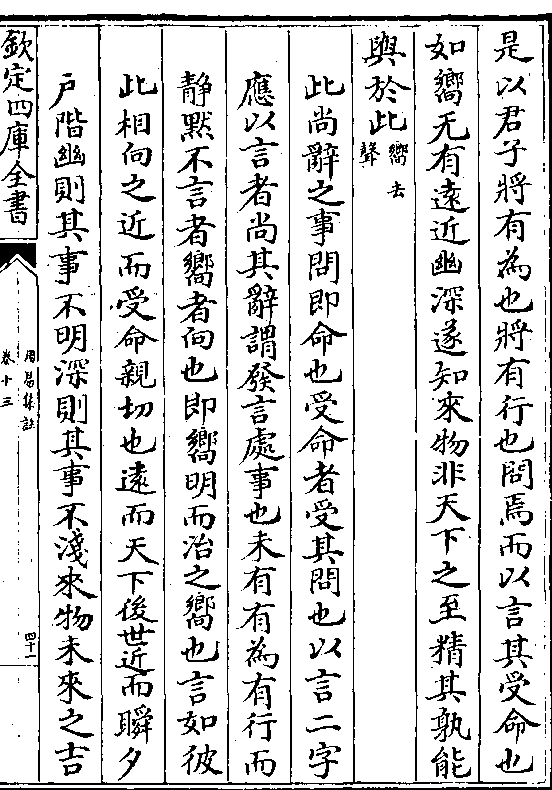 是以君子將有為也將有行也問焉而以言其受命也
如嚮无有遠近幽深遂知來物非天下之至精其孰能
與於此嚮去聲
此尚辭之事問即命也受命者受其問也以言二字
應以言者尚其辭謂發言處事也未有有為有行而
静默不言者嚮者向也即嚮明而治之嚮也言如彼
此相向之近而受命親切也遠而天下後世近而瞬夕
戶階幽則其事不明深則其事不淺來物未來之吉
欽定四庫全書
周易集註
卷十三
四十一